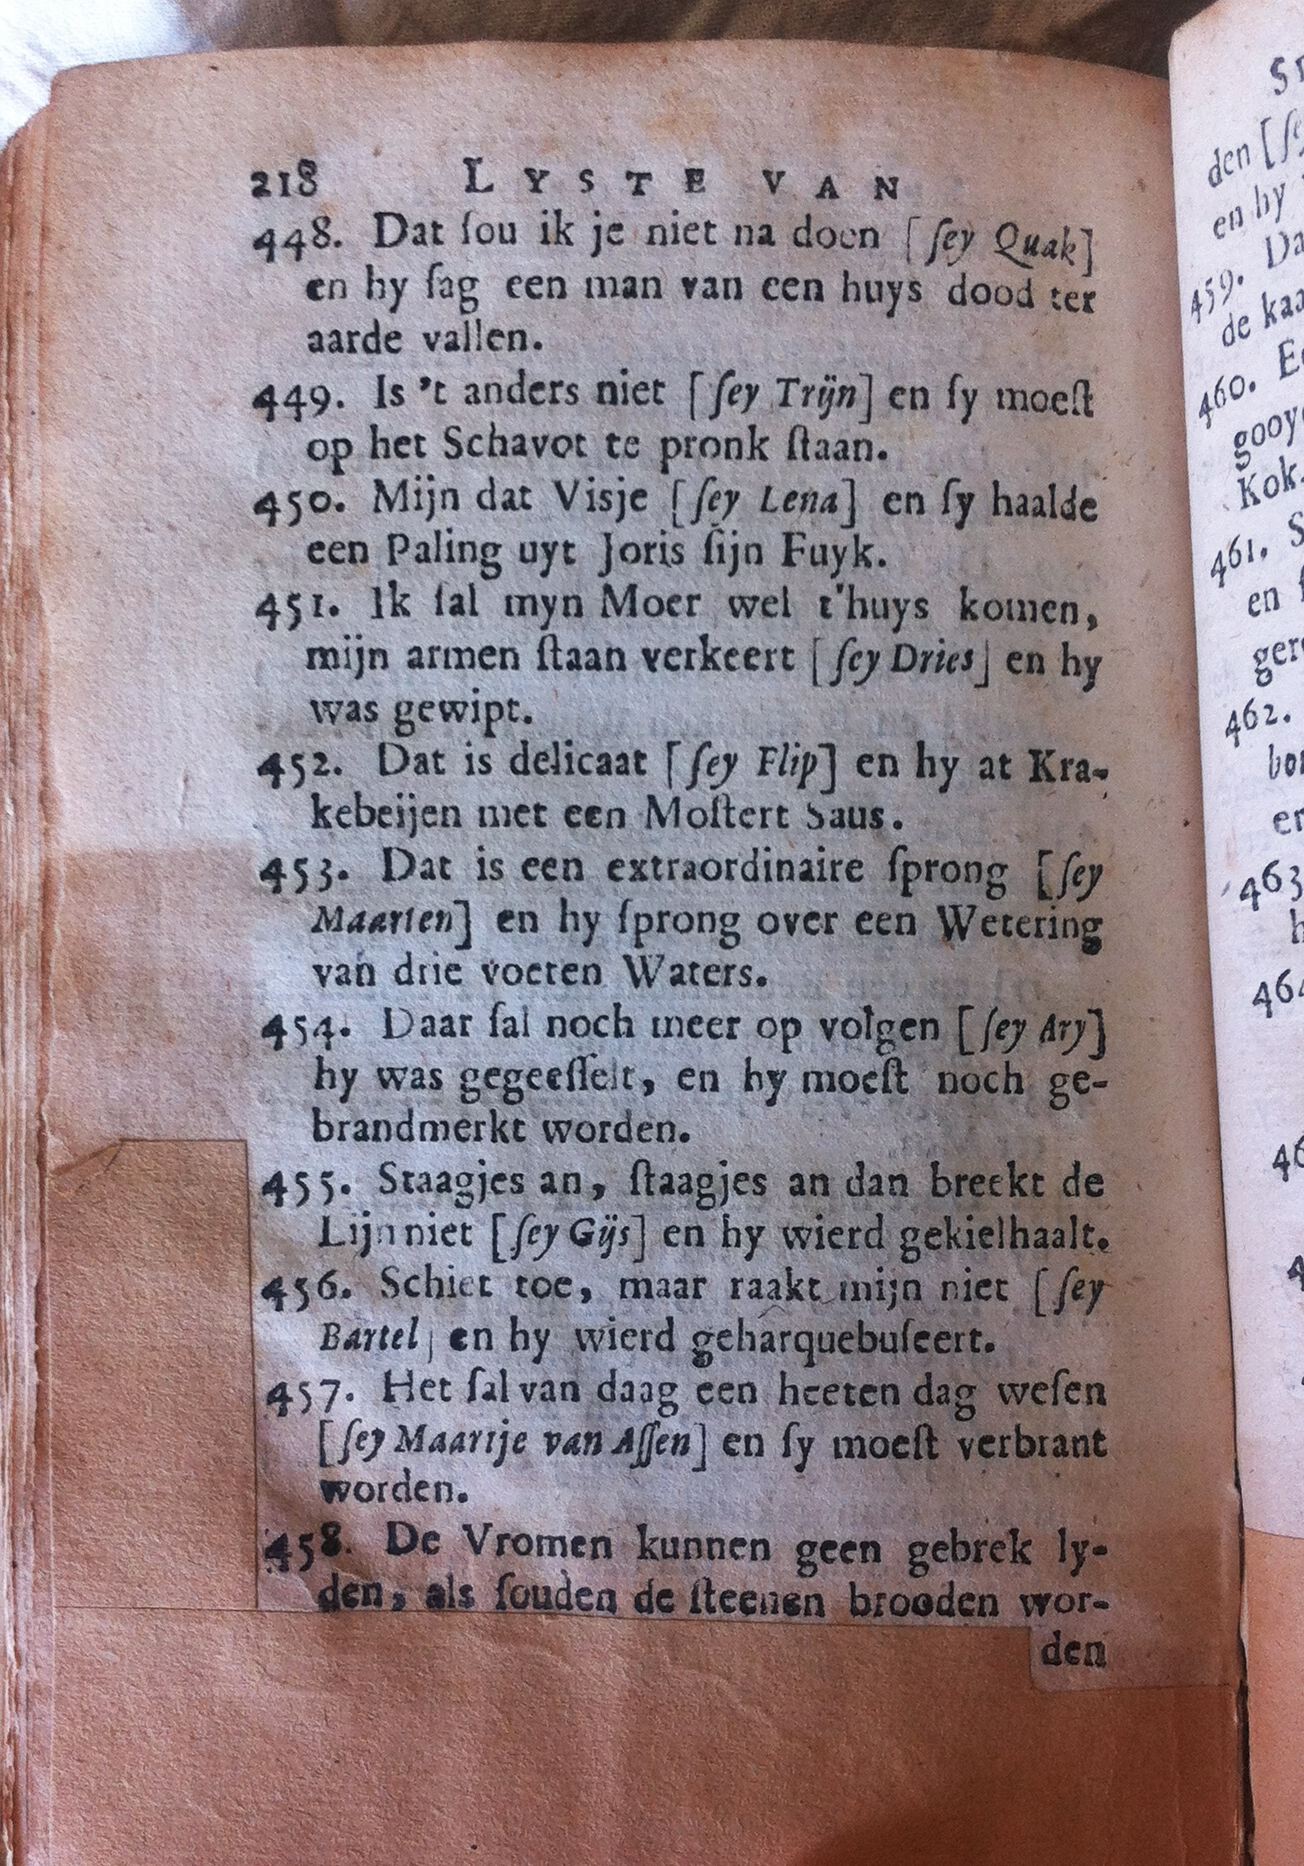 218 LYSTE VAN
448. Dat ſou ik je niet na doen [ſey Quak]
en hy ſag een man van een huys dood ter
aarde vallen.
449. Is 't anders niet [ſey Trijn] en ſy moeſt
op het Schavot te pronk ſtaan.
450. Mijn dat Visje [ſey Lena] en ſy haalde
een Paling uyt Joris ſijn Fuyk.
451. Ik ſal myn Moer wel t'huys komen,
mijn armen ſtaan verkeert [ſey Dries] en hy
was gewipt.
452. Dat is delicaat [ſey Flip] en hy at Kra-
kebeijen met een Moſtert Saus.
453. Dat is een extraordinaire ſprong [ſey
Maarten] en hy ſprong over een Wetering
van drie voeten Waters.
454. Daar ſal noch meer op volgen [ſey Ary]
hy was gegeeſſelt, en hy moeſt noch ge-
brandmerkt worden.
455. Staagjes an, ſtaagjes an dan breekt de
Lijn niet [ſey Gijs] en hy wierd gekielhaalt.
456. Schiet toe, maar raakt mijn niet [ſey
Bartel] en hy wierd geharquebuſeert.
457. Het ſal van daag een heeten dag weſen
[ſey Maartje van Aſſen] en ſy moeſt verbrant
worden.
458. De Vromen kunnen geen gebrek ly-
den, als ſouden de ſteenen brooden wor-
den
den [ſey
en hy
459. Da
de kaa
460.
gooy
Kok.
461. S
en
ger
462.
bor
en
463
h
464
46